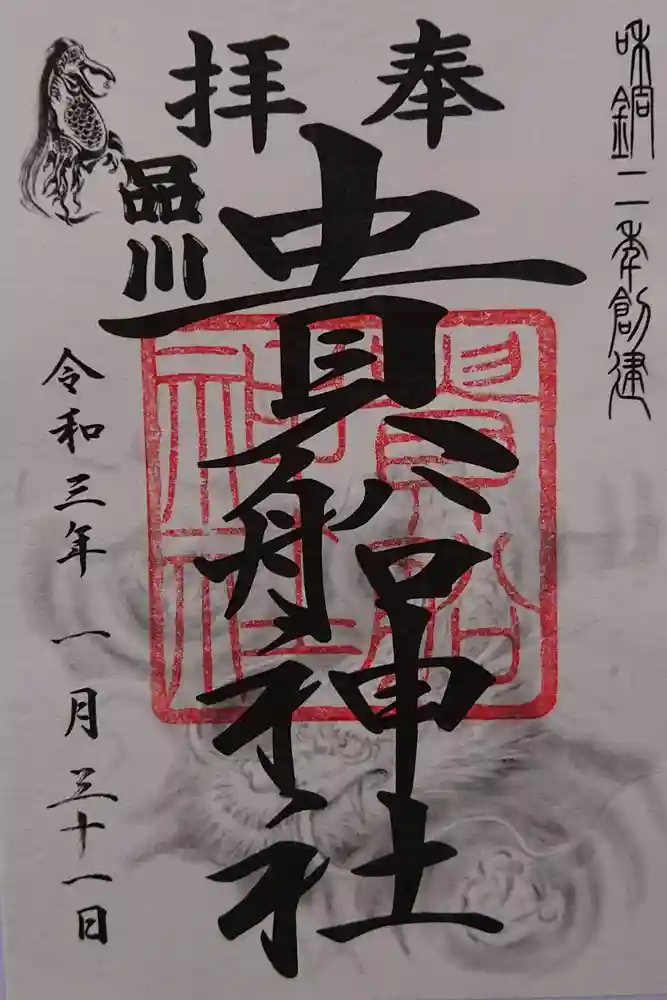 和銅二年創建
奉拝
品川
貴船神社
貴船神社
令和三年 一月 三十一日